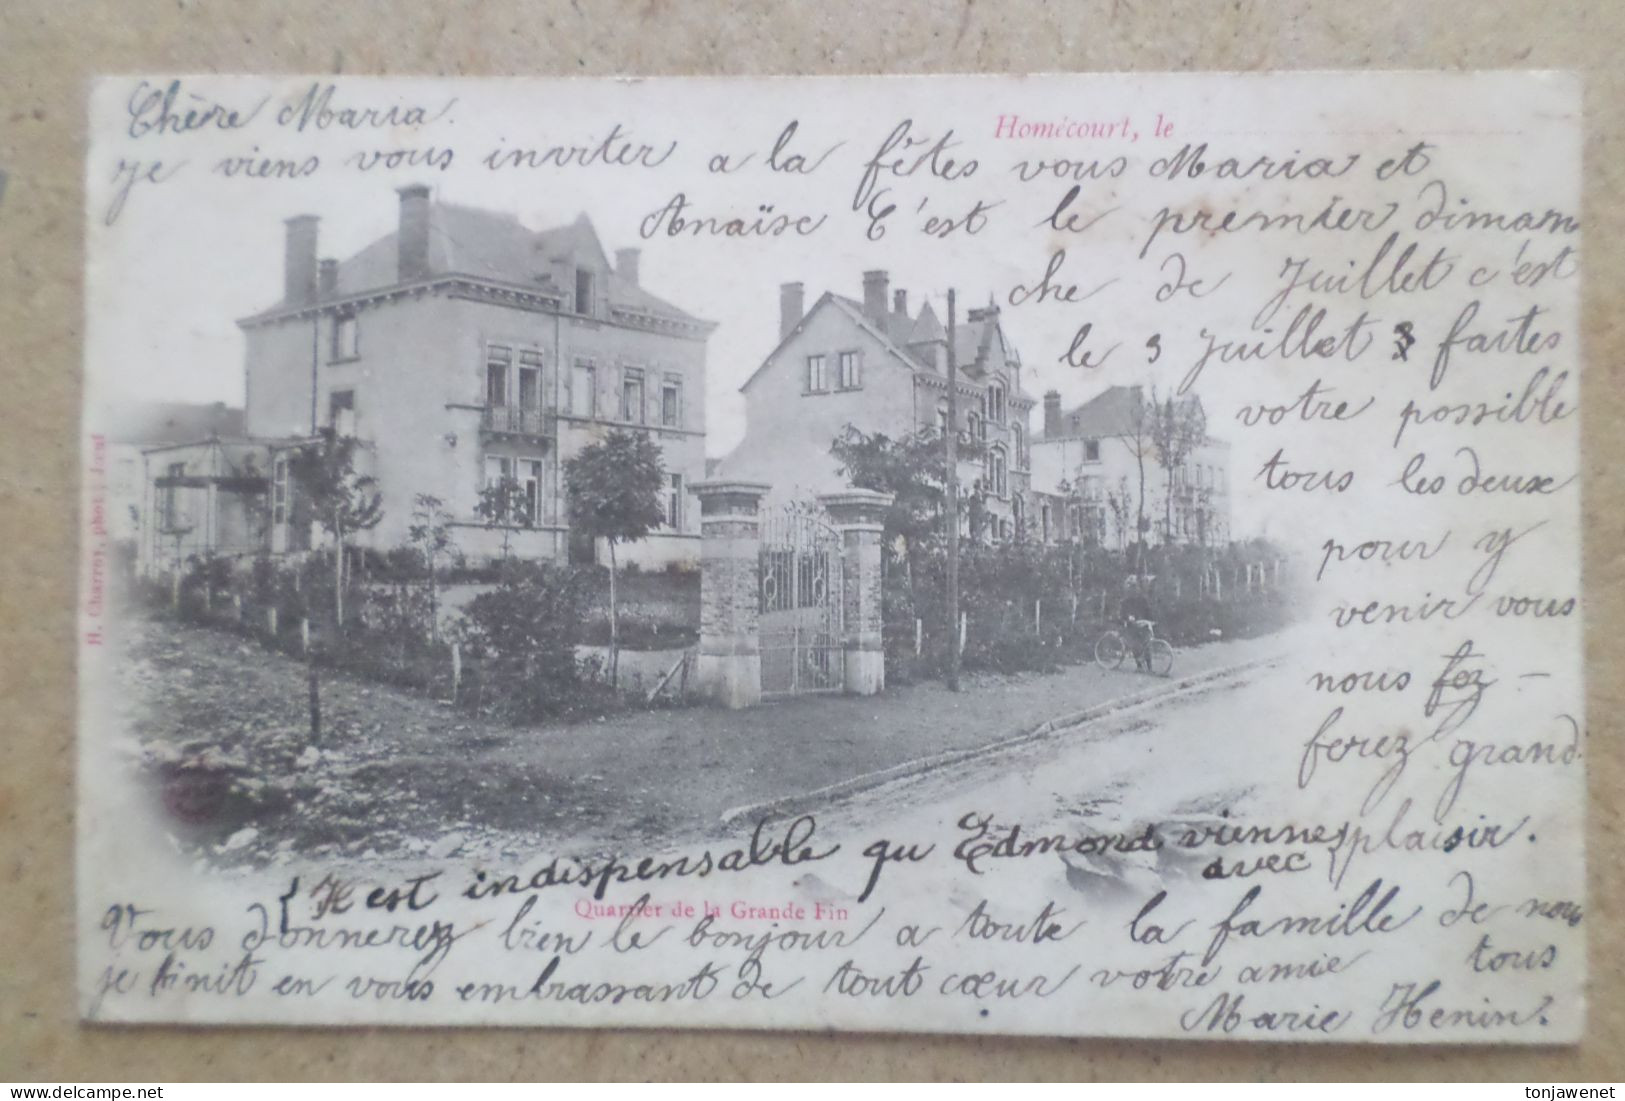 Chère Maria.
Homécourt, le
je viens vous inviter a la fêtes vous Maria et
Anaïse C'est le premier diman
che de Juillet c'est
le 3 Juillet 3 faites
votre possible
tous les deux
pour y
venir vous
nous fez -
ferez grand
plaisir.
{Il est indispensable qu Edmond viennes
avec
Quartier de la Grande Fin
Vous donnerez bien le bonjour a toute la famille de nous
tous
je finit en vous embrassant de tout cœur votre amie
Marie Henin.
H. Charroy, phot., Jœuf
tonjawenet
delcampe.net